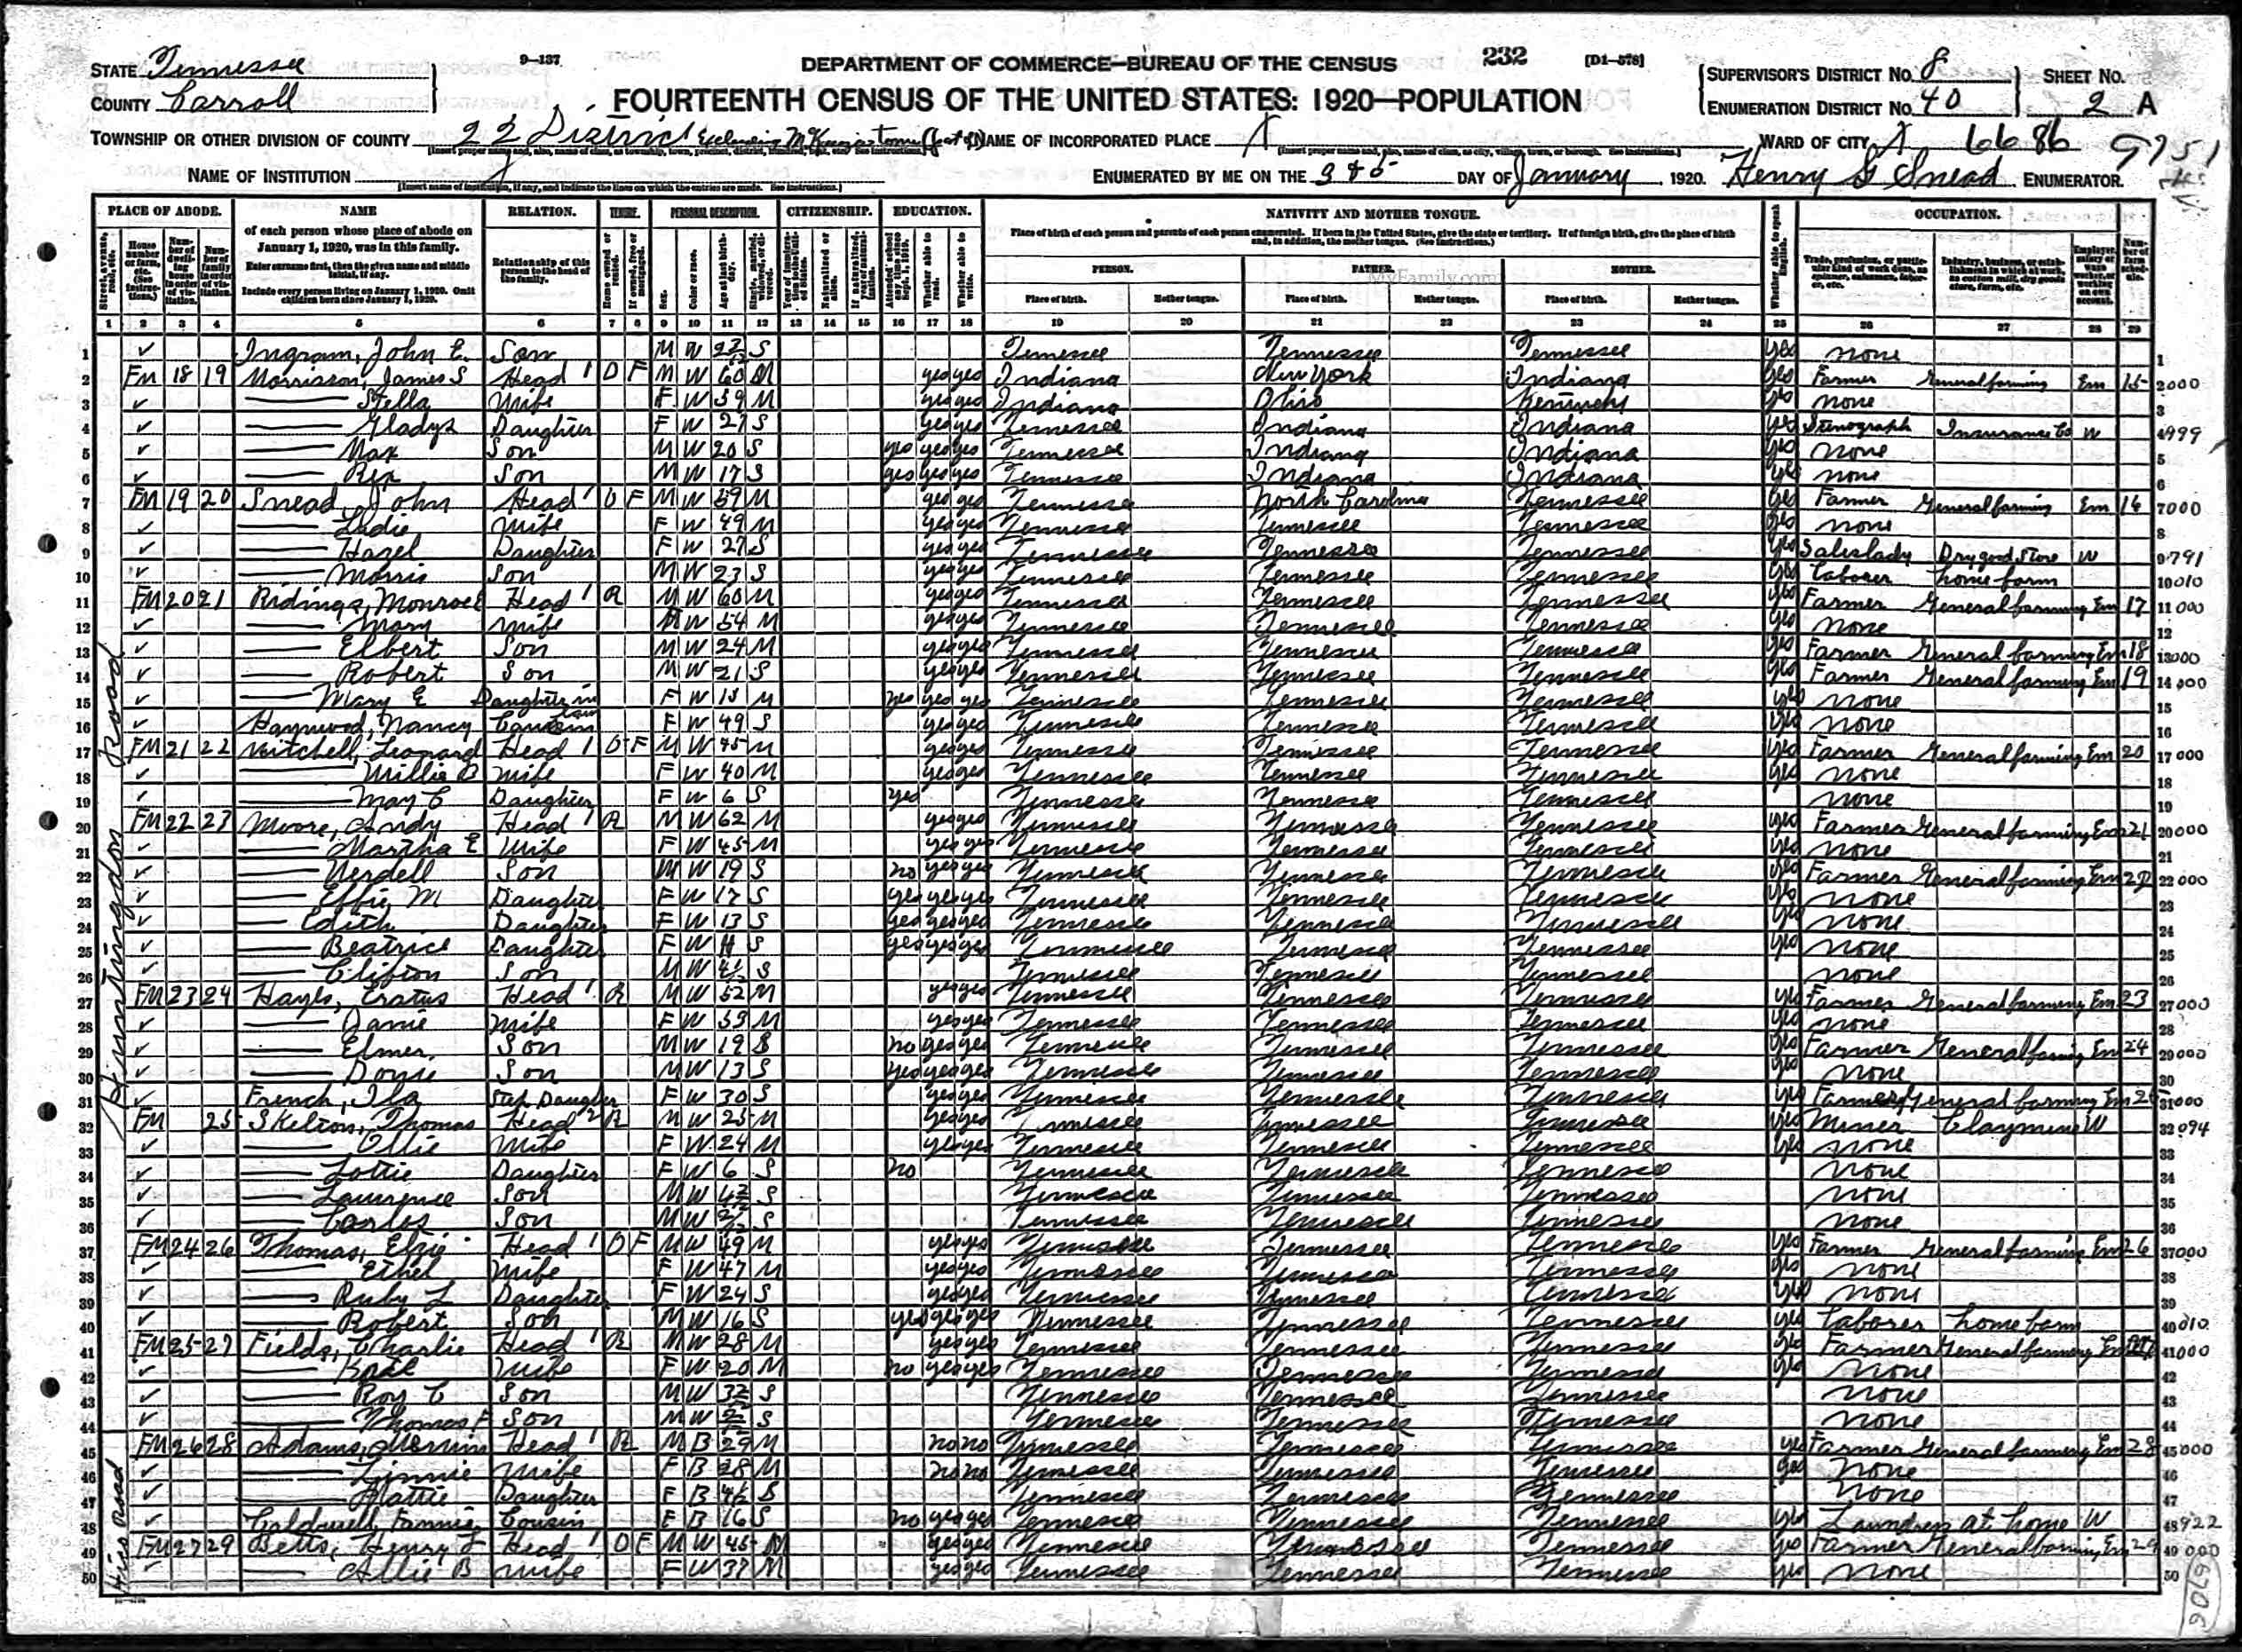 9—137
DEPARTMENT OF COMMERCE—BUREAU OF THE CENSUS
232
[D1—578]
STATE Tennessee
COUNTY Carroll
FOURTEENTH CENSUS OF THE UNITED STATES: 1920—POPULATION
SUPERVISOR'S DISTRICT No. 8
ENUMERATION DISTRICT No. 40
SHEET No. 2 A
TOWNSHIP OR OTHER DIVISION OF COUNTY 22 District Excluding McKenzie town (part of)
NAME OF INCORPORATED PLACE X
WARD OF CITY X 6686 9751
NAME OF INSTITUTION X
ENUMERATED BY ME ON THE 3 & 5 DAY OF January, 1920. Henry G Snead ENUMERATOR.
PLACE OF ABODE. NAME RELATION. TENURE. PERSONAL DESCRIPTION. CITIZENSHIP. EDUCATION. NATIVITY AND MOTHER TONGUE. OCCUPATION.
of each person whose place of abode on January 1, 1920, was in this family.
Enter surname first, then the given name and middle initial, if any.
Include every person living on January 1, 1920. Omit children born since January 1, 1920.
Relationship of this person to the head of the family.
Place of birth of each person and parents of each person enumerated. If born in the United States, give the state or territory. If of foreign birth, give the place of birth and, in addition, the mother tongue. (See instructions.)
PERSON. FATHER. MOTHER.
MyFamily.com
Place of birth. Mother tongue. Place of birth. Mother tongue. Place of birth. Mother tongue.
1 2 3 4 5 6 7 8 9 10 11 12 13 14 15 16 17 18 19 20 21 22 23 24 25 26 27 28 29
1 Ingram, John E. Son M W S Tennessee Tennessee Tennessee yes none 1
2 FM 18 19 Morrison, James S Head 1 O F M W 60 M yes yes Indiana New York Indiana yes Farmer General farming Em 15 2000
3 Stella Wife F W 59 M yes yes Indiana Ohio yes none 3
4 Gladys Daughter F W 27 S yes yes Tennessee Indiana Indiana yes Stenograph Insurance Co W 4999
5 Max Son M W 20 S yes yes yes Tennessee Indiana Indiana yes none 5
6 Rex Son M W 17 S yes yes yes Tennessee Indiana Indiana yes none 6
7 FM 19 20 Snead, John Head 1 O F M W 59 M yes yes Tennessee North Carolina Tennessee yes Farmer General farming Em 16 7000
8 Wife F W 49 M yes yes Tennessee Tennessee Tennessee yes none 8
9 Hazel Daughter F W 27 S yes yes Tennessee Tennessee Tennessee yes Saleslady Dry good Store W 9791
10 Morris Son M W 23 S yes yes Tennessee Tennessee Tennessee yes Laborer home farm 10010
11 FM 20 21 Ridings, Monroe E Head 1 R M W 60 M yes yes Tennessee Tennessee Tennessee yes Farmer General farming Em 17 11000
12 Mary Wife F W 54 M yes yes Tennessee Tennessee Tennessee yes none 12
13 Elbert Son M W 24 M yes yes Tennessee Tennessee Tennessee yes Farmer General farming Em 18 13000
14 Robert Son M W 21 S yes yes Tennessee Tennessee Tennessee yes Farmer General farming Em 19 14000
15 Mary E Daughter in law F W 18 M yes yes yes Tennessee Tennessee Tennessee yes none 15
16 Haywood, Nancy Cousin F W 49 S yes yes Tennessee Tennessee Tennessee yes none 16
17 FM 21 22 Mitchell, Leonard Head 1 O F M W 45 M yes yes Tennessee Tennessee Tennessee yes Farmer General farming Em 20 17000
18 Millie B Wife F W 40 M yes yes Tennessee Tennessee Tennessee yes none 18
19 May C Daughter F W 6 S yes Tennessee Tennessee Tennessee none 19
20 FM 22 23 Moore, Andy Head 1 R M W 62 M yes yes Tennessee Tennessee Tennessee yes Farmer General farming Em 21 20000
21 Martha E Wife F W 45 M yes yes Tennessee Tennessee Tennessee yes none 21
22 Son M W 19 S no yes yes Tennessee Tennessee Tennessee yes Farmer General farming Em 22 22000
23 Effie M Daughter F W 17 S yes yes yes Tennessee Tennessee Tennessee yes none 23
24 Edith Daughter F W 13 S yes yes yes Tennessee Tennessee Tennessee yes none 24
25 Beatrice Daughter F W 11 S yes yes yes Tennessee Tennessee Tennessee yes none 25
26 Clifton Son M W S Tennessee Tennessee Tennessee none 26
27 FM 23 24 Hayes, Eratus Head 1 R M W 52 M yes yes Tennessee Tennessee Tennessee yes Farmer General farming Em 23 27000
28 Janie Wife F W 53 M yes yes Tennessee Tennessee Tennessee yes none 28
29 Elmer Son M W 19 S no yes yes Tennessee Tennessee Tennessee yes Farmer General farming Em 24 29000
30 Son M W 13 S yes yes yes Tennessee Tennessee Tennessee yes none 30
31 French, Ila Step Daughter F W 30 S yes yes Tennessee Tennessee Tennessee yes Farmer General farming Em 25 31000
32 FM 25 Skelton, Thomas Head 2 R M W 25 M yes yes Tennessee Tennessee Tennessee yes Miner Clay mine W 32094
33 Ollie Wife F W 24 M yes yes Tennessee Tennessee Tennessee yes none 33
34 Lottie Daughter F W 6 S no Tennessee Tennessee Tennessee none 34
35 Lawrence Son M W S Tennessee Tennessee Tennessee none 35
36 Carles Son M W S Tennessee Tennessee Tennessee none 36
37 FM 24 26 Thomas, Elzie Head 1 O F M W 49 M yes yes Tennessee Tennessee Tennessee yes Farmer General farming Em 26 37000
38 Ethel Wife F W 47 M yes yes Tennessee Tennessee Tennessee yes none 38
39 Ruby L Daughter F W 24 S yes yes Tennessee Tennessee Tennessee yes none 39
40 Robert Son M W 16 S yes yes yes Tennessee Tennessee Tennessee yes Laborer home farm 40010
41 FM 25 27 Fields, Charlie Head 1 R M W 28 M yes yes Tennessee Tennessee Tennessee yes Farmer General farming Em 41000
42 Wife F W 20 M no yes yes Tennessee Tennessee Tennessee yes none 42
43 Roy C Son M W S Tennessee Tennessee Tennessee none 43
44 Thomas F Son M W S Tennessee Tennessee Tennessee none 44
45 FM 26 28 Adams, Head 1 R M B 29 M no no Tennessee Tennessee Tennessee yes Farmer General farming Em 28 45000
46 Linnie Wife F B 28 M no no Tennessee Tennessee Tennessee yes none 46
47 Mattie Daughter F B S Tennessee Tennessee Tennessee none 47
48 Caldwell, Fannie Cousin F B 16 S no yes yes Tennessee Tennessee Tennessee yes Laundress at home W 48922
49 FM 27 29 Betts, Henry L Head 1 O F M W 45 M yes yes Tennessee Tennessee Tennessee yes Farmer General farming Em 29 49000
50 Allie B Wife F W 37 M yes yes Tennessee Tennessee Tennessee yes none 50
Huntingdon Road
Road